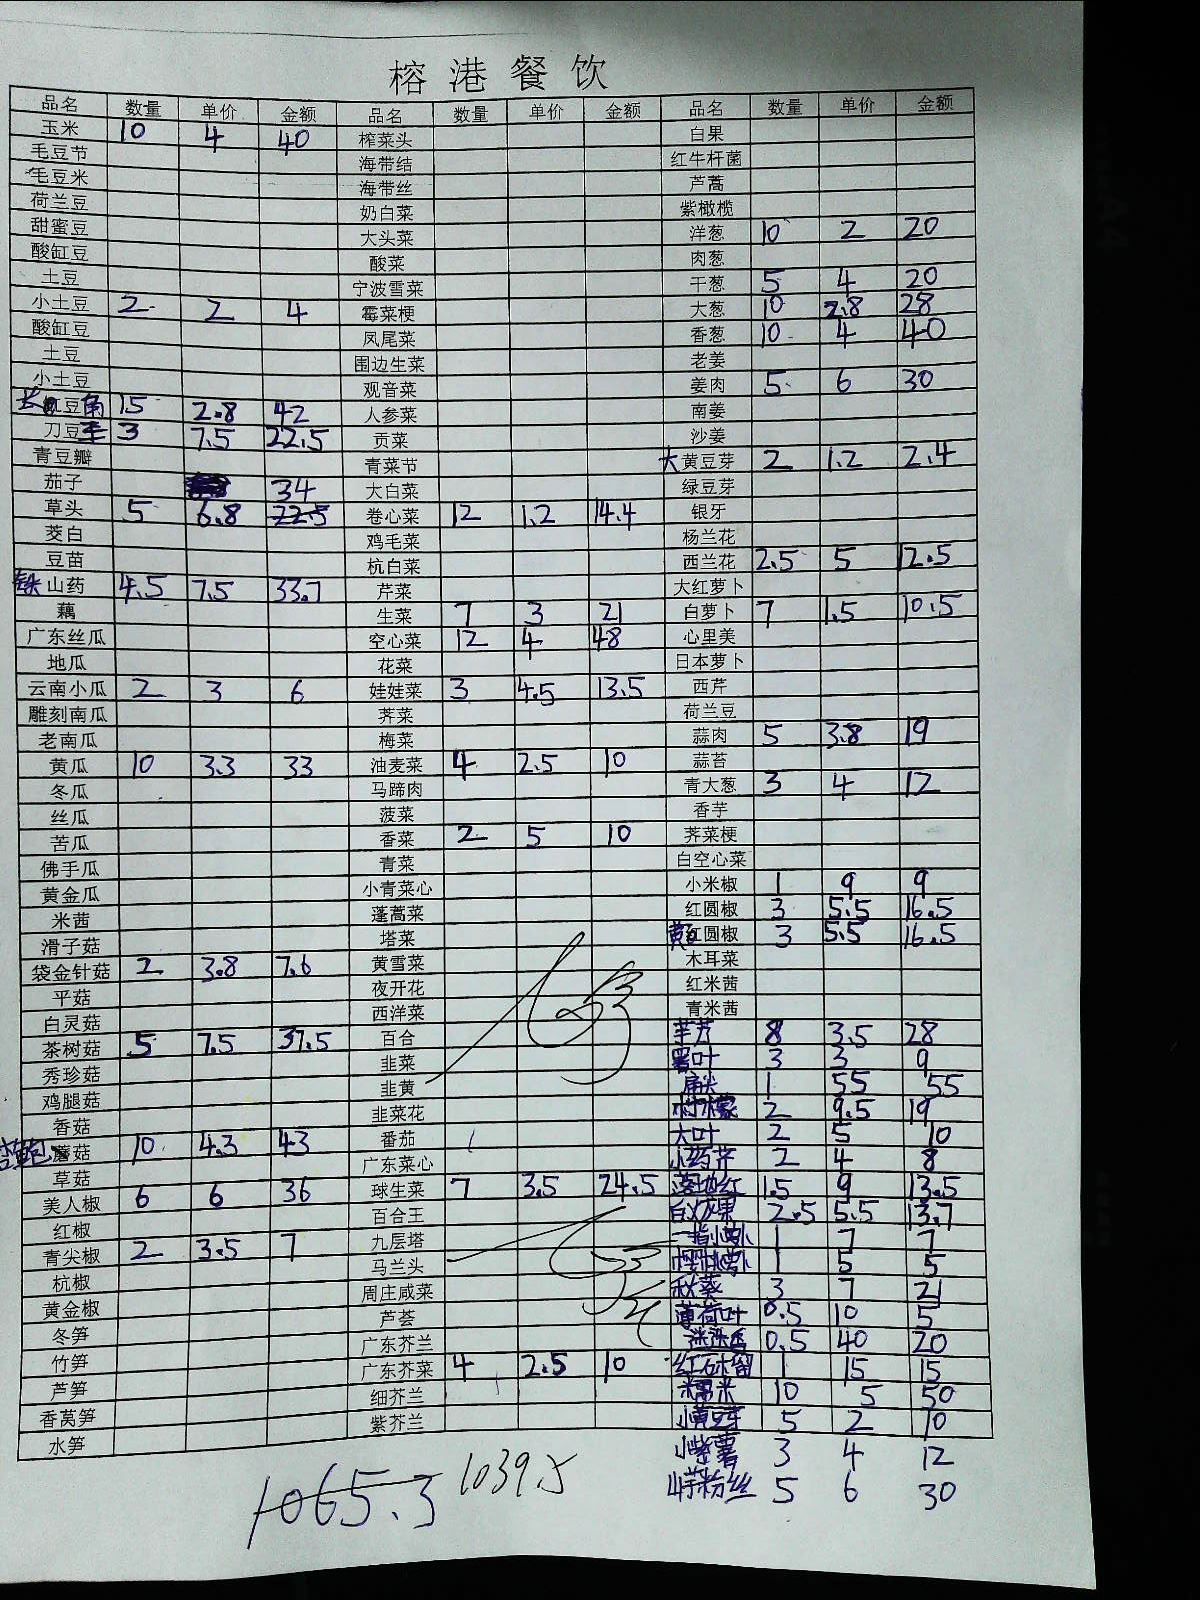 榕港餐饮
品名 数量 单价 金额 品名 数量 单价 金额 品名 数量 单价 金额
玉米 10 4 40 榨菜头 白果
毛豆节 海带结 红牛杆菌
毛豆米 海带丝 芦蒿
荷兰豆 奶白菜 紫橄榄
甜蜜豆 大头菜 洋葱 10 2 20
酸缸豆 酸菜 肉葱
土豆 宁波雪菜 干葱 5 4 20
小土豆 2 2 4 霉菜梗 大葱 10 2.8 28
酸缸豆 凤尾菜 香葱 10 4 40
土豆 围边生菜 老姜
小土豆 观音菜 姜肉 5 6 30
长豇豆角 15 2.8 42 人参菜 南姜
刀豆 3 7.5 22.5 贡菜 沙姜
青豆瓣 青菜节 大黄豆芽 2 1.2 2.4
茄子 34 大白菜 绿豆芽
草头 5 6.8 22.5 卷心菜 12 1.2 14.4 银牙
茭白 鸡毛菜 杨兰花
豆苗 杭白菜 西兰花 2.5 5 12.5
铁山药 4.5 7.5 33.7 芹菜 大红萝卜
藕 生菜 7 3 21 白萝卜 7 1.5 10.5
广东丝瓜 空心菜 12 4 48 心里美
地瓜 花菜 日本萝卜
云南小瓜 2 3 6 娃娃菜 3 4.5 13.5 西芹
雕刻南瓜 荠菜 荷兰豆
老南瓜 梅菜 蒜肉 5 3.8 19
黄瓜 10 3.3 33 油麦菜 4 2.5 10 蒜苔
冬瓜 马蹄肉 青大葱 3 4 12
丝瓜 菠菜 香芋
苦瓜 香菜 2 5 10 荠菜梗
佛手瓜 青菜 白空心菜
黄金瓜 小青菜心 小米椒 1 9 9
米茜 蓬蒿菜 红圆椒 3 5.5 16.5
滑子菇 塔菜 黄红圆椒 3 5.5 16.5
袋金针菇 2 3.8 7.6 黄雪菜 木耳菜
平菇 夜开花 红米茜
白灵菇 西洋菜 青米茜
茶树菇 5 7.5 37.5 百合 芋艿 8 3.5 28
秀珍菇 韭菜 署叶 3 3 9
鸡腿菇 韭黄 1 55 55
香菇 韭菜花 柠檬 2 9.5 19
杏鲍蘑菇 10 4.3 43 番茄 大叶 2 5 10
草菇 广东菜心 小药芹 2 4 8
美人椒 6 6 36 球生菜 7 3.5 24.5 落地红 1.5 9 13.5
红椒 百合王 白火龙果 2.5 5.5 13.7
青尖椒 2 3.5 7 九层塔 一指小萝卜 1 7 7
杭椒 马兰头 樱桃萝卜 1 5 5
黄金椒 周庄咸菜 秋葵 3 7 21
冬笋 芦荟 薄荷叶 0.5 10 5
竹笋 广东芥兰 0.5 40 20
芦笋 广东芥菜 4 2.5 10 红石榴 1 15 15
香莴笋 细芥兰 糯米 10 5 50
水笋 紫芥兰 小黄豆芽 5 2 10
小紫薯 3 4 12
山芋粉丝 5 6 30
1065.3 1039.5